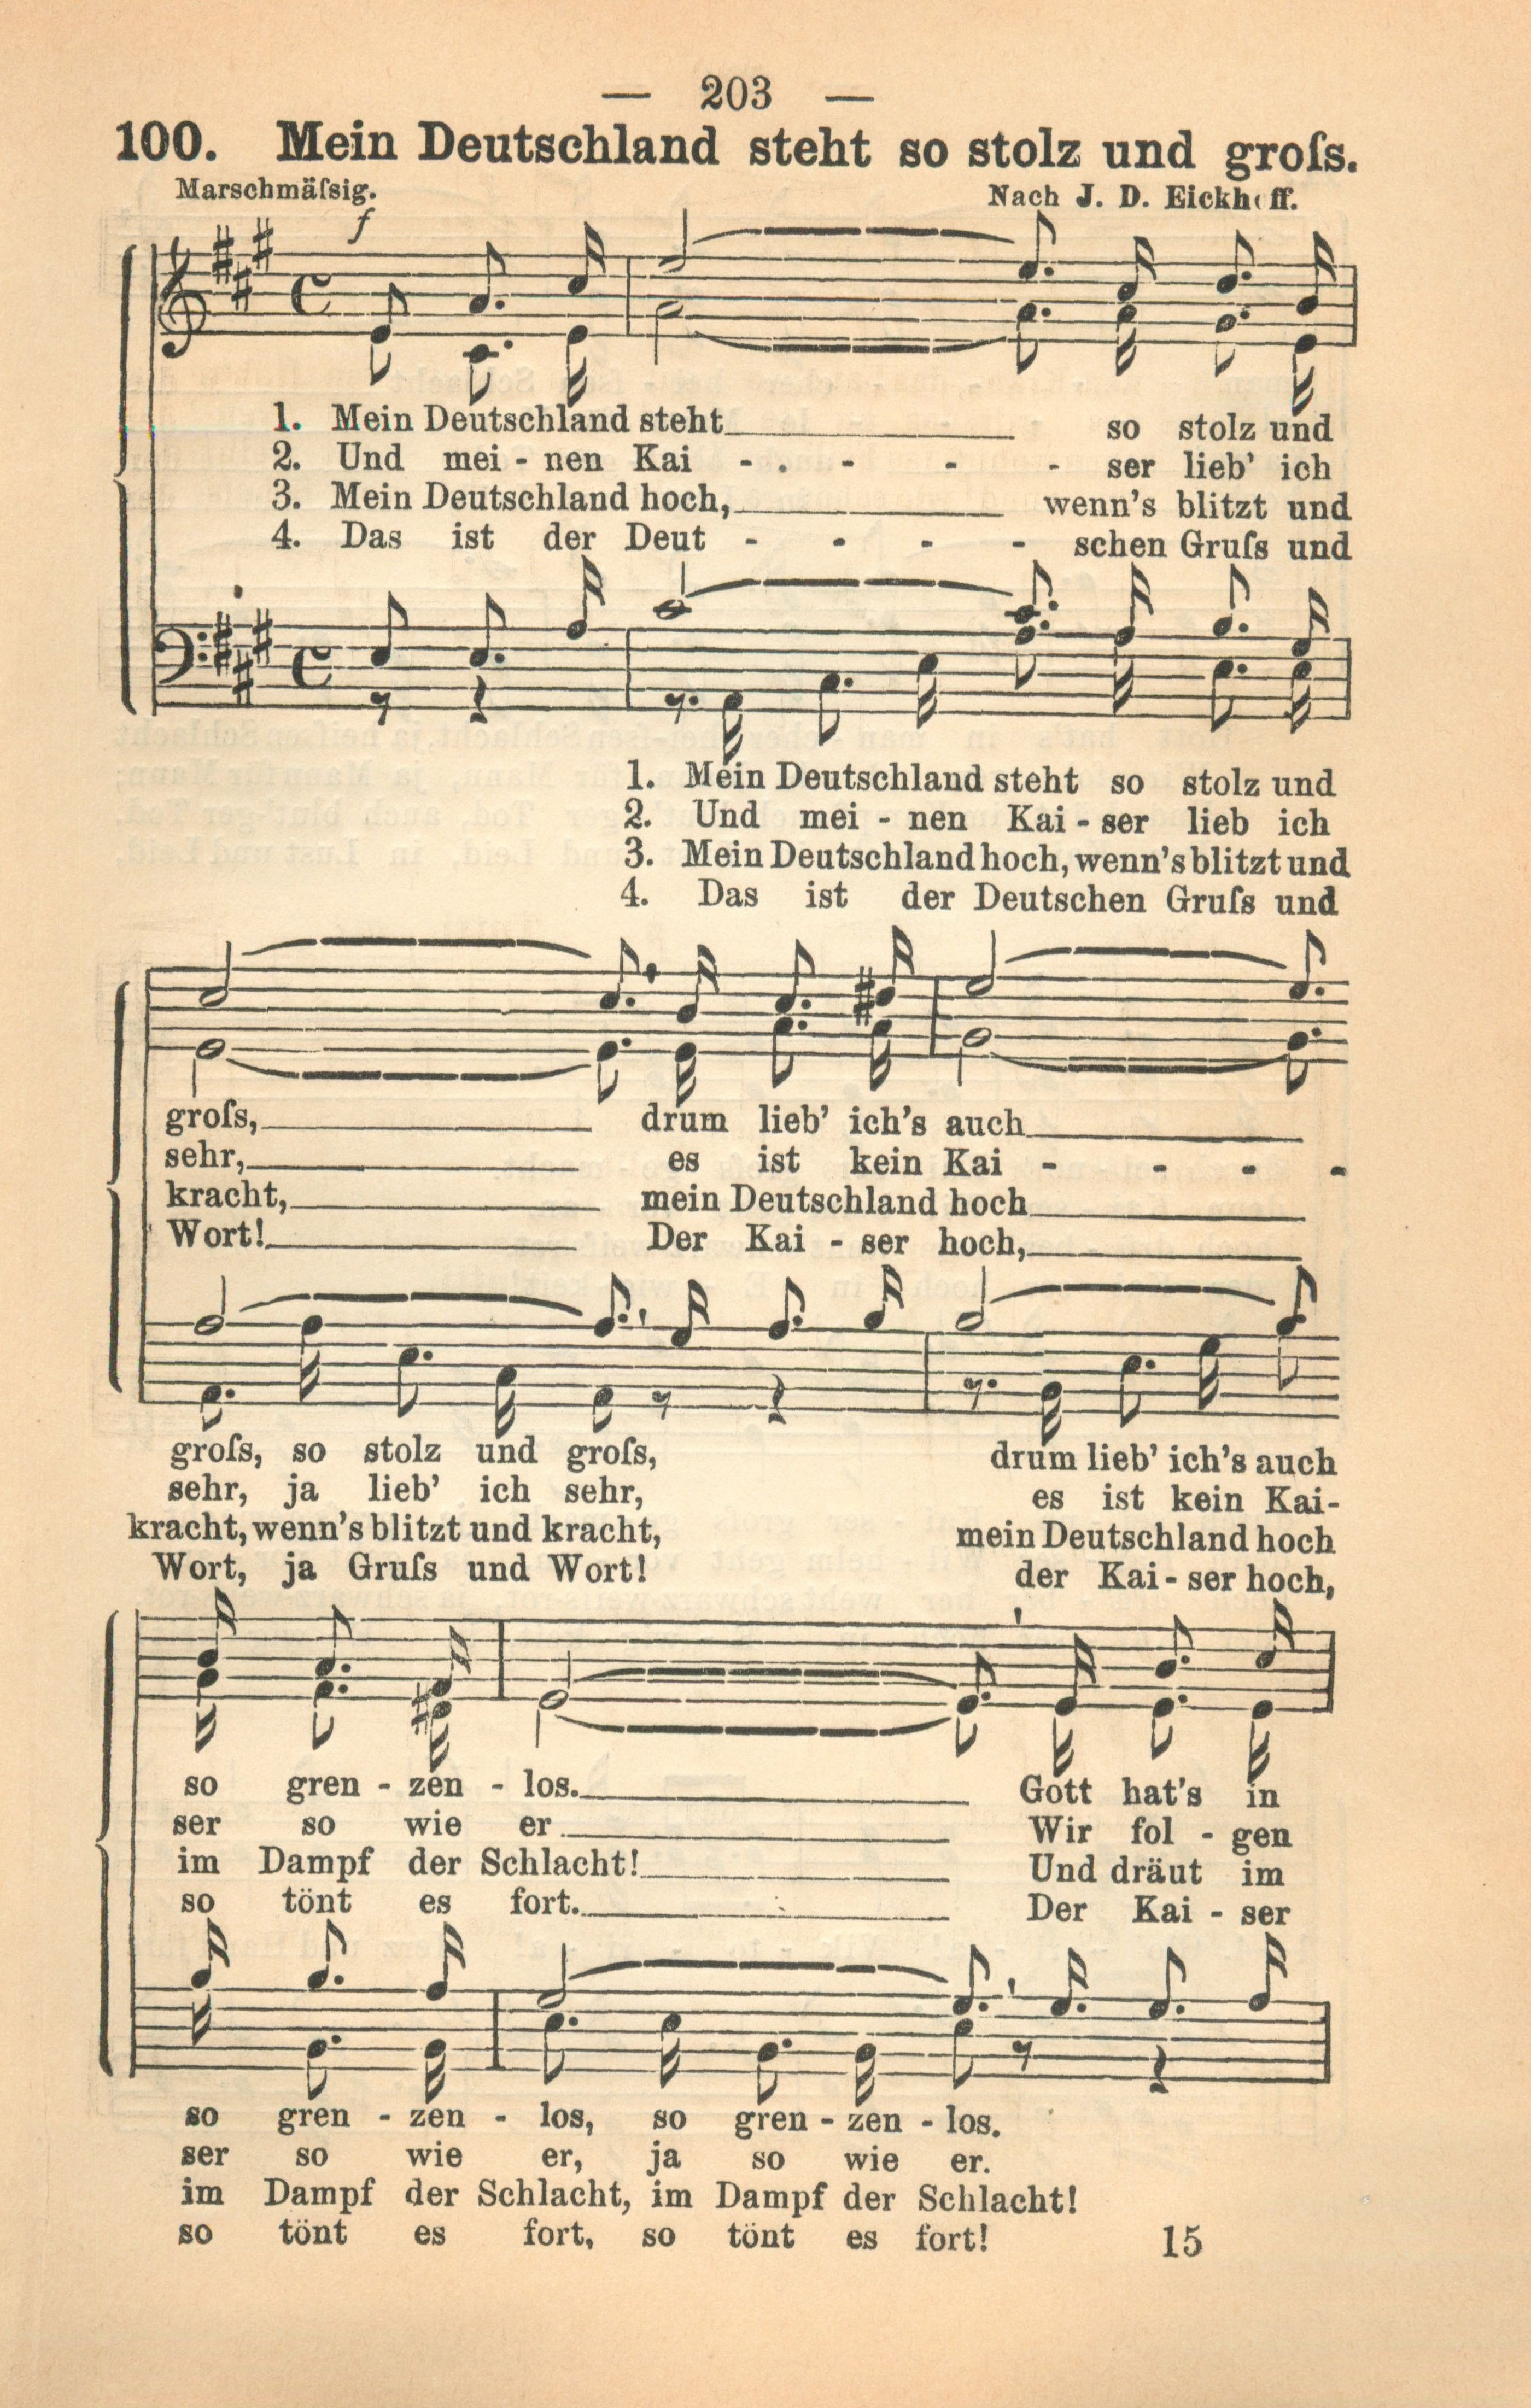 — 203 —
100. Mein Deutschland steht so stolz und groſs.
Marschmäſsig. Nach J. D. Eickhoff.
f
1. Mein Deutschland steht so stolz und
2. Und mei - nen Kai - - - - - ser lieb' ich
3. Mein Deutschland hoch, wenn's blitzt und
4. Das ist der Deut - - - - schen Gruſs und
1. Mein Deutschland steht so stolz und
2. Und mei - nen Kai - ser lieb ich
3. Mein Deutschland hoch, wenn's blitzt und
4. Das ist der Deutschen Gruſs und
groſs, drum lieb' ich's auch
sehr, es ist kein Kai - - - -
kracht, mein Deutschland hoch
Wort! Der Kai - ser hoch,
groſs, so stolz und groſs, drum lieb' ich's auch
sehr, ja lieb' ich sehr, es ist kein Kai-
kracht, wenn's blitzt und kracht, mein Deutschland hoch
Wort, ja Gruſs und Wort! der Kai - ser hoch,
so gren - zen - los. Gott hat's in
ser so wie er Wir fol - gen
im Dampf der Schlacht! Und dräut im
so tönt es fort. Der Kai - ser
so gren - zen - los, so gren - zen - los.
ser so wie er, ja so wie er.
im Dampf der Schlacht, im Dampf der Schlacht!
so tönt es fort, so tönt es fort!
15